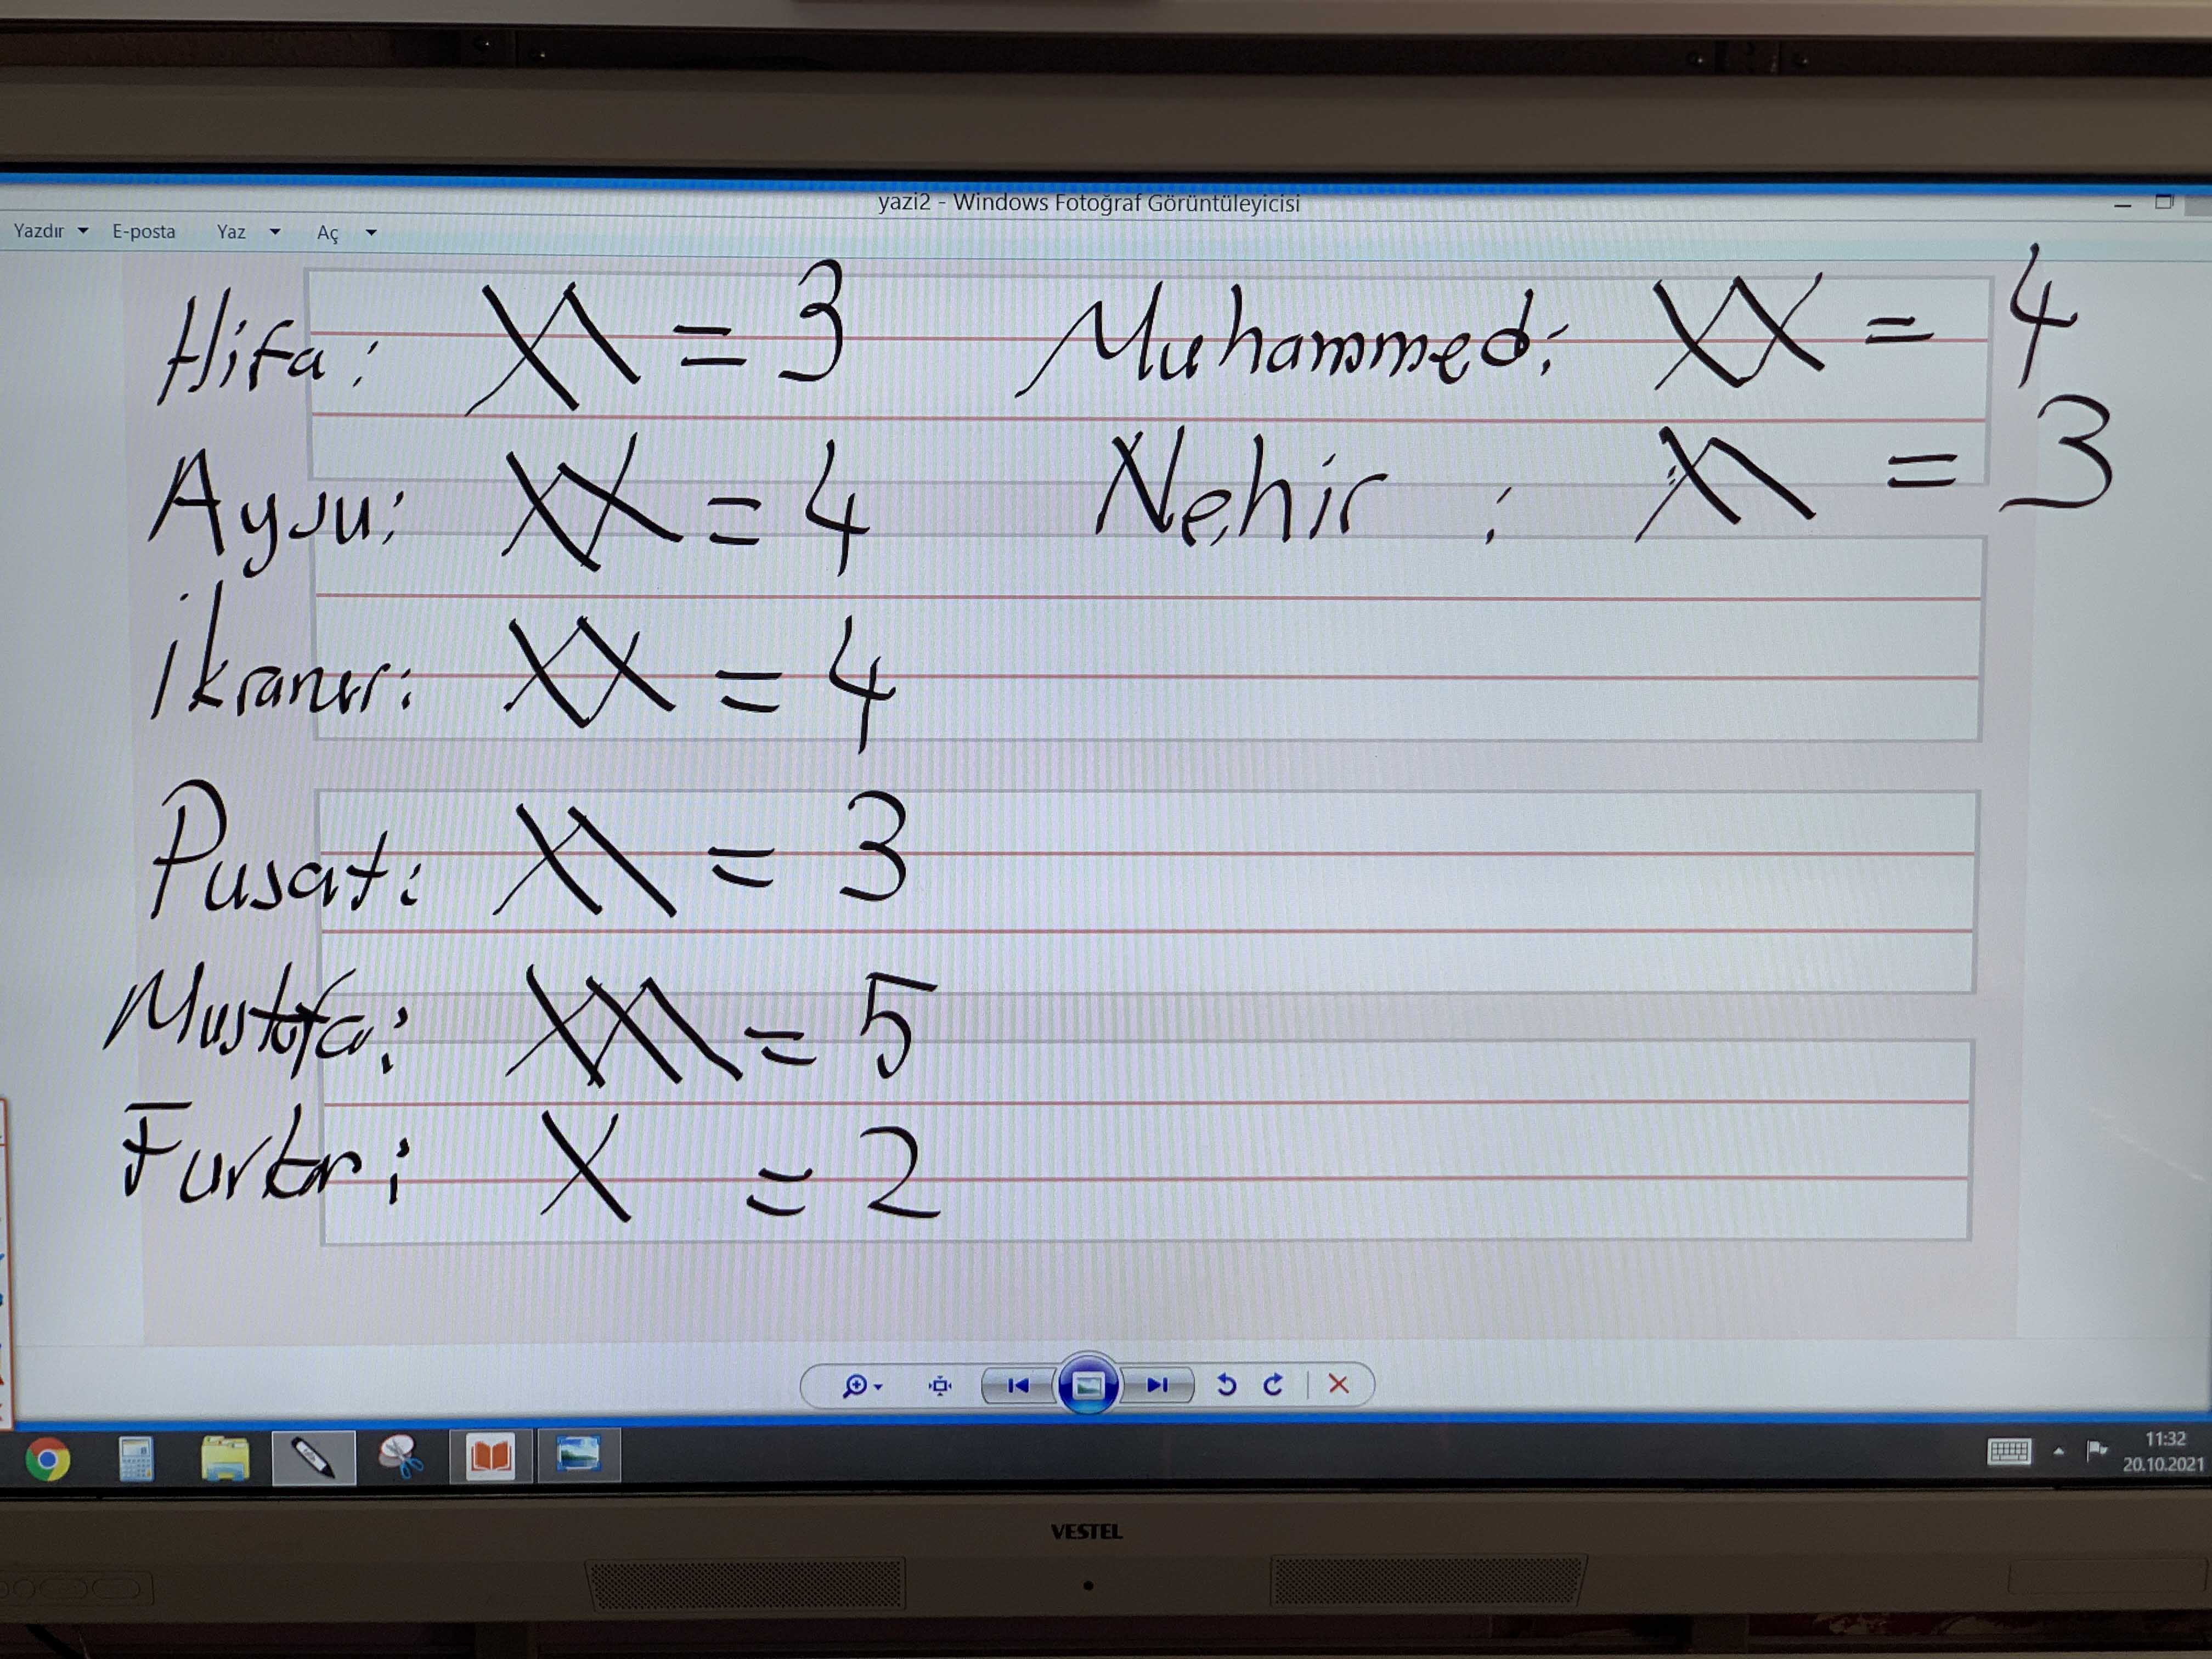 yazi2 - Windows Fotoğraf Görüntüleyicisi
Yazdır E-posta Yaz Aç
Hifa: XX = 3 Muhammed: XX = 4
Aysu: XX = 4 Nehir : XX = 3
İkranur: XX = 4
Pusat: XX = 3
Mustafa: XXX = 5
Furkan: X = 2
11:32
20.10.2021
VESTEL